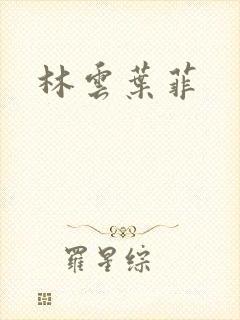 林雲葉菲
羅星綜